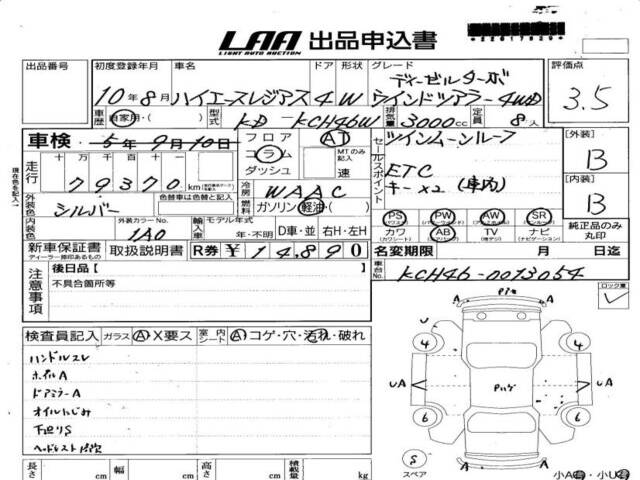 LAA 出品申込書
LIGHT AUTO AUCTION
*22617829*
出品番号 初度登録年月 車名 ドア 形状 グレード 評価点
10年8月 ハイエースレジアス 4 W ディーゼルターボ
ウインドツアラー 4WD 3.5
車歴 自家用・( ) 型式 KD-KCH46W 排気量 3000cc 定員 8人
車検 5年9月10日 フロア AT ツインムーンルーフ [外装]
コラム MTのみ記入 B
走行 十 万 千 百 十 一 ダッシュ 速 セールスポイント ETC
79370 km 冷房 WAAC キー×2 (車内) [内装]
外装色 シルバー 色替車は色替と記入 燃料 ガソリン・軽油・( ) B
PS PW AW SR
内装色 外装カラーNo. 1A0 輸入車 モデル年式 年・不明 D車・並 右H・左H
カワ AB TV ナビ 純正品のみ丸印
(カワシート) (エアバッグ) (地デジ) (ナビゲーション)
新車保証書 取扱説明書 R券 ¥14,890 名変期限 月 日迄
ディーラー捺印あるもの
車台No. KCH46-0073054
注意事項 後日品[ ]
不具合箇所等
ロック車
検査員記入 ガラス A・X要ス 室内シート A・コゲ・穴・汚れ・破れ
ハンドルスレ
ホイルA
ドアミラーA
オイルにじみ
下廻りS
ヘッドレスト
A A
U
4 4
UA Pハゲ UA
6 6
A A
S
スペア
長さ cm 幅 cm 高さ cm 積載量 kg
小A・小U
現在色を記入